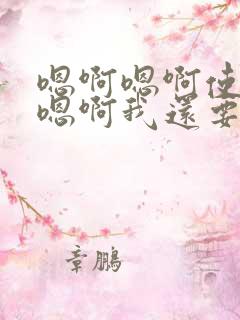 嗯啊嗯啊使
嗯啊我還要
章鵬